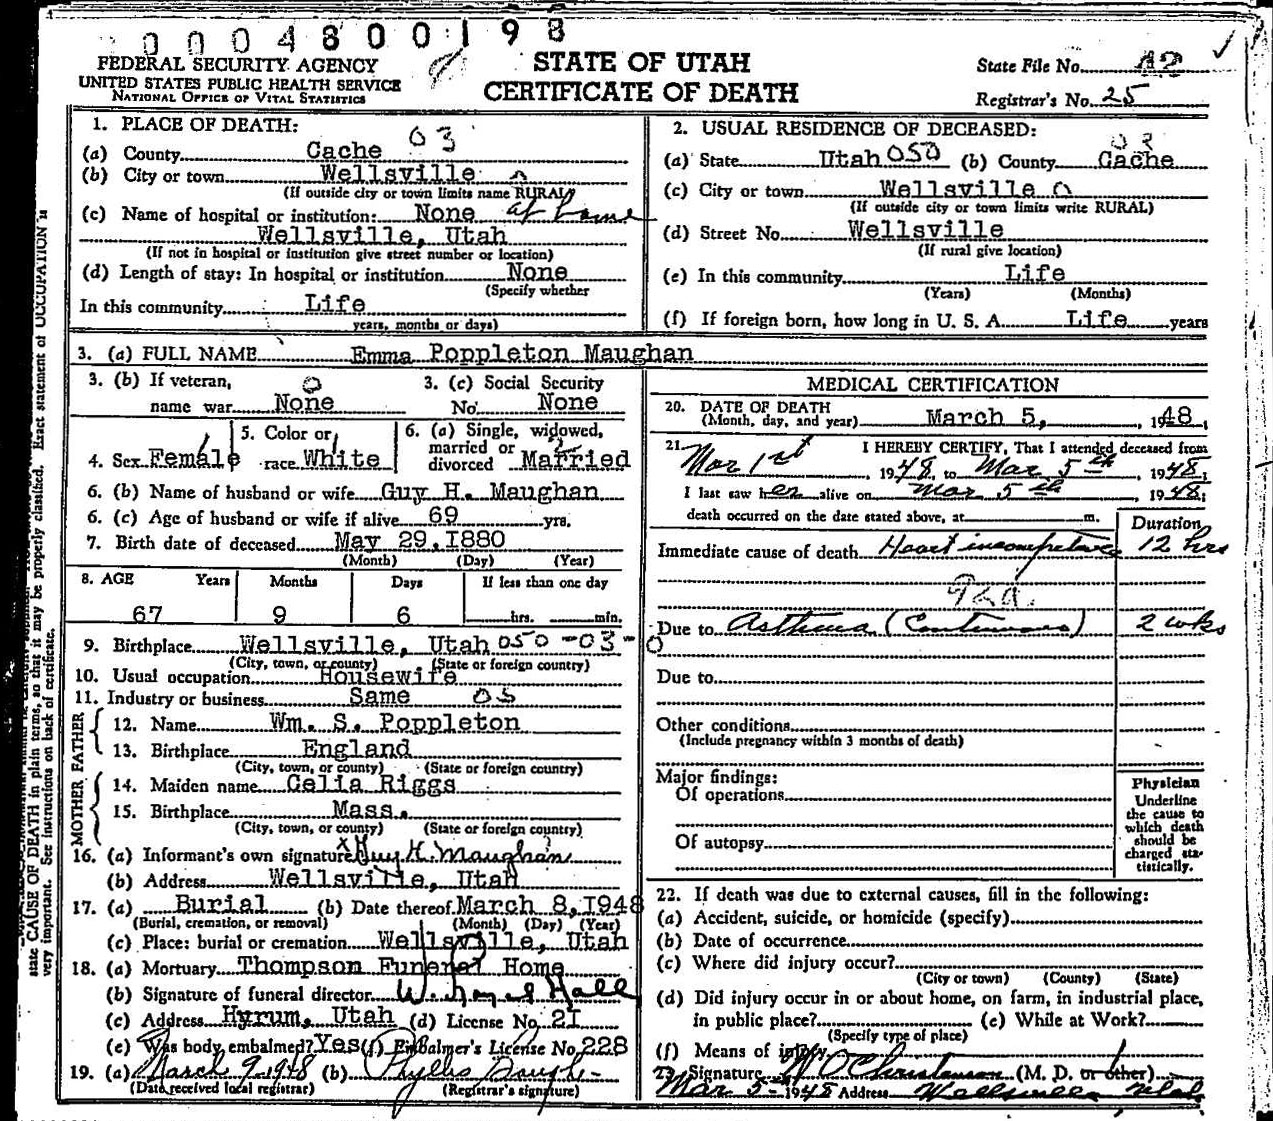 0004800198
FEDERAL SECURITY AGENCY
UNITED STATES PUBLIC HEALTH SERVICE
NATIONAL OFFICE OF VITAL STATISTICS
STATE OF UTAH
CERTIFICATE OF DEATH
State File No.
Registrar's No. 25
1. PLACE OF DEATH:
(a) County Cache 03
(b) City or town Wellsville
(If outside city or town limits name RURAL)
(c) Name of hospital or institution: None at home
Wellsville, Utah
(If not in hospital or institution give street number or location)
(d) Length of stay: In hospital or institution None
(Specify whether
In this community Life
years, months or days)
2. USUAL RESIDENCE OF DECEASED:
(a) State Utah 050 (b) County Cache 03
(c) City or town Wellsville
(If outside city or town limits write RURAL)
(d) Street No. Wellsville
(If rural give location)
(e) In this community Life
(Years) (Months)
(f) If foreign born, how long in U. S. A. Life years
3. (a) FULL NAME Emma Poppleton Maughan
3. (b) If veteran,
name war None
3. (c) Social Security
No. None
4. Sex Female
5. Color or
race White
6. (a) Single, widowed,
married or
divorced Married
6. (b) Name of husband or wife Guy H. Maughan
6. (c) Age of husband or wife if alive 69 yrs.
7. Birth date of deceased May 29, 1880
(Month) (Day) (Year)
8. AGE Years Months Days If less than one day
67 9 6 hrs. min.
9. Birthplace Wellsville, Utah 050-03-0
(City, town, or county) (State or foreign country)
10. Usual occupation Housewife
11. Industry or business Same 05
FATHER
12. Name Wm. S. Poppleton
13. Birthplace England
(City, town, or county) (State or foreign country)
MOTHER
14. Maiden name Celia Riggs
15. Birthplace Mass.
(City, town, or county) (State or foreign country)
16. (a) Informant's own signature x Guy H. Maughan
(b) Address Wellsville, Utah
17. (a) Burial (b) Date thereof March 8, 1948
(Burial, cremation, or removal) (Month) (Day) (Year)
(c) Place: burial or cremation Wellsville, Utah
18. (a) Mortuary Thompson Funeral Home
(b) Signature of funeral director W. Hall
(c) Address Hyrum, Utah (d) License No. 21
(e) Was body embalmed? Yes (f) Embalmer's License No. 228
19. (a) March 9-1948 (b) Phyllis
(Date received local registrar) (Registrar's signature)
MEDICAL CERTIFICATION
20. DATE OF DEATH
(Month, day, and year) March 5, 1948.
21. I HEREBY CERTIFY, That I attended deceased from
Mar 1st 1948, to Mar 5th 1948;
I last saw her alive on Mar 5th, 1948;
death occurred on the date stated above, at m.
Duration
Immediate cause of death Heart incompetance 12 hrs
Due to Asthma (Continuous) 2 wks
Due to
Other conditions
(Include pregnancy within 3 months of death)
Major findings:
Of operations
Of autopsy
Physician
Underline
the cause to
which death
should be
charged sta-
tistically.
22. If death was due to external causes, fill in the following:
(a) Accident, suicide, or homicide (specify)
(b) Date of occurrence
(c) Where did injury occur?
(City or town) (County) (State)
(d) Did injury occur in or about home, on farm, in industrial place,
in public place? (e) While at Work?
(Specify type of place)
(f) Means of injury
23. Signature W O Christensen (M. D. or other)
Mar 5-1948 Address Wellsville Utah
state CAUSE OF DEATH in plain terms, so that it may be properly classified. Exact statement of OCCUPATION is
very important. See instructions on back of certificate.